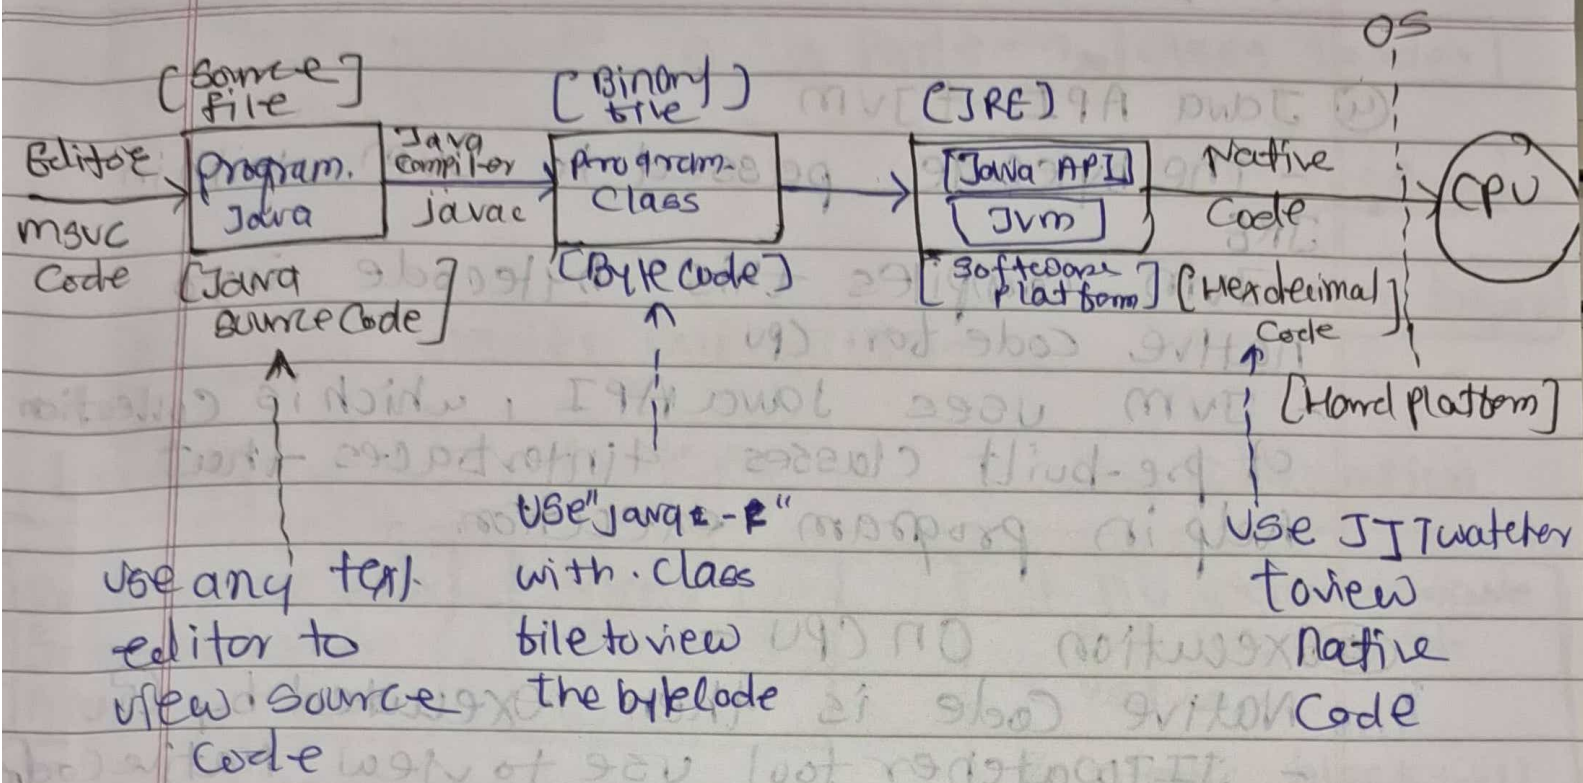 OS
[Source
file]
[Binary
file]
[JRE]
Editor
msvc
Code
Program.
Java
Java
Compiler
javac
Program.
Class
[Java API]
[Jvm]
Native
Code
CPU
[Java
source Code]
[Byte Code]
[Software
Platform]
[Hexdecimal
Code]
[Hard platform]
use any text
editor to
view source
code
USE"
with .class
file to view
the bytecode
Use JITwatcher
to view
Native
Code